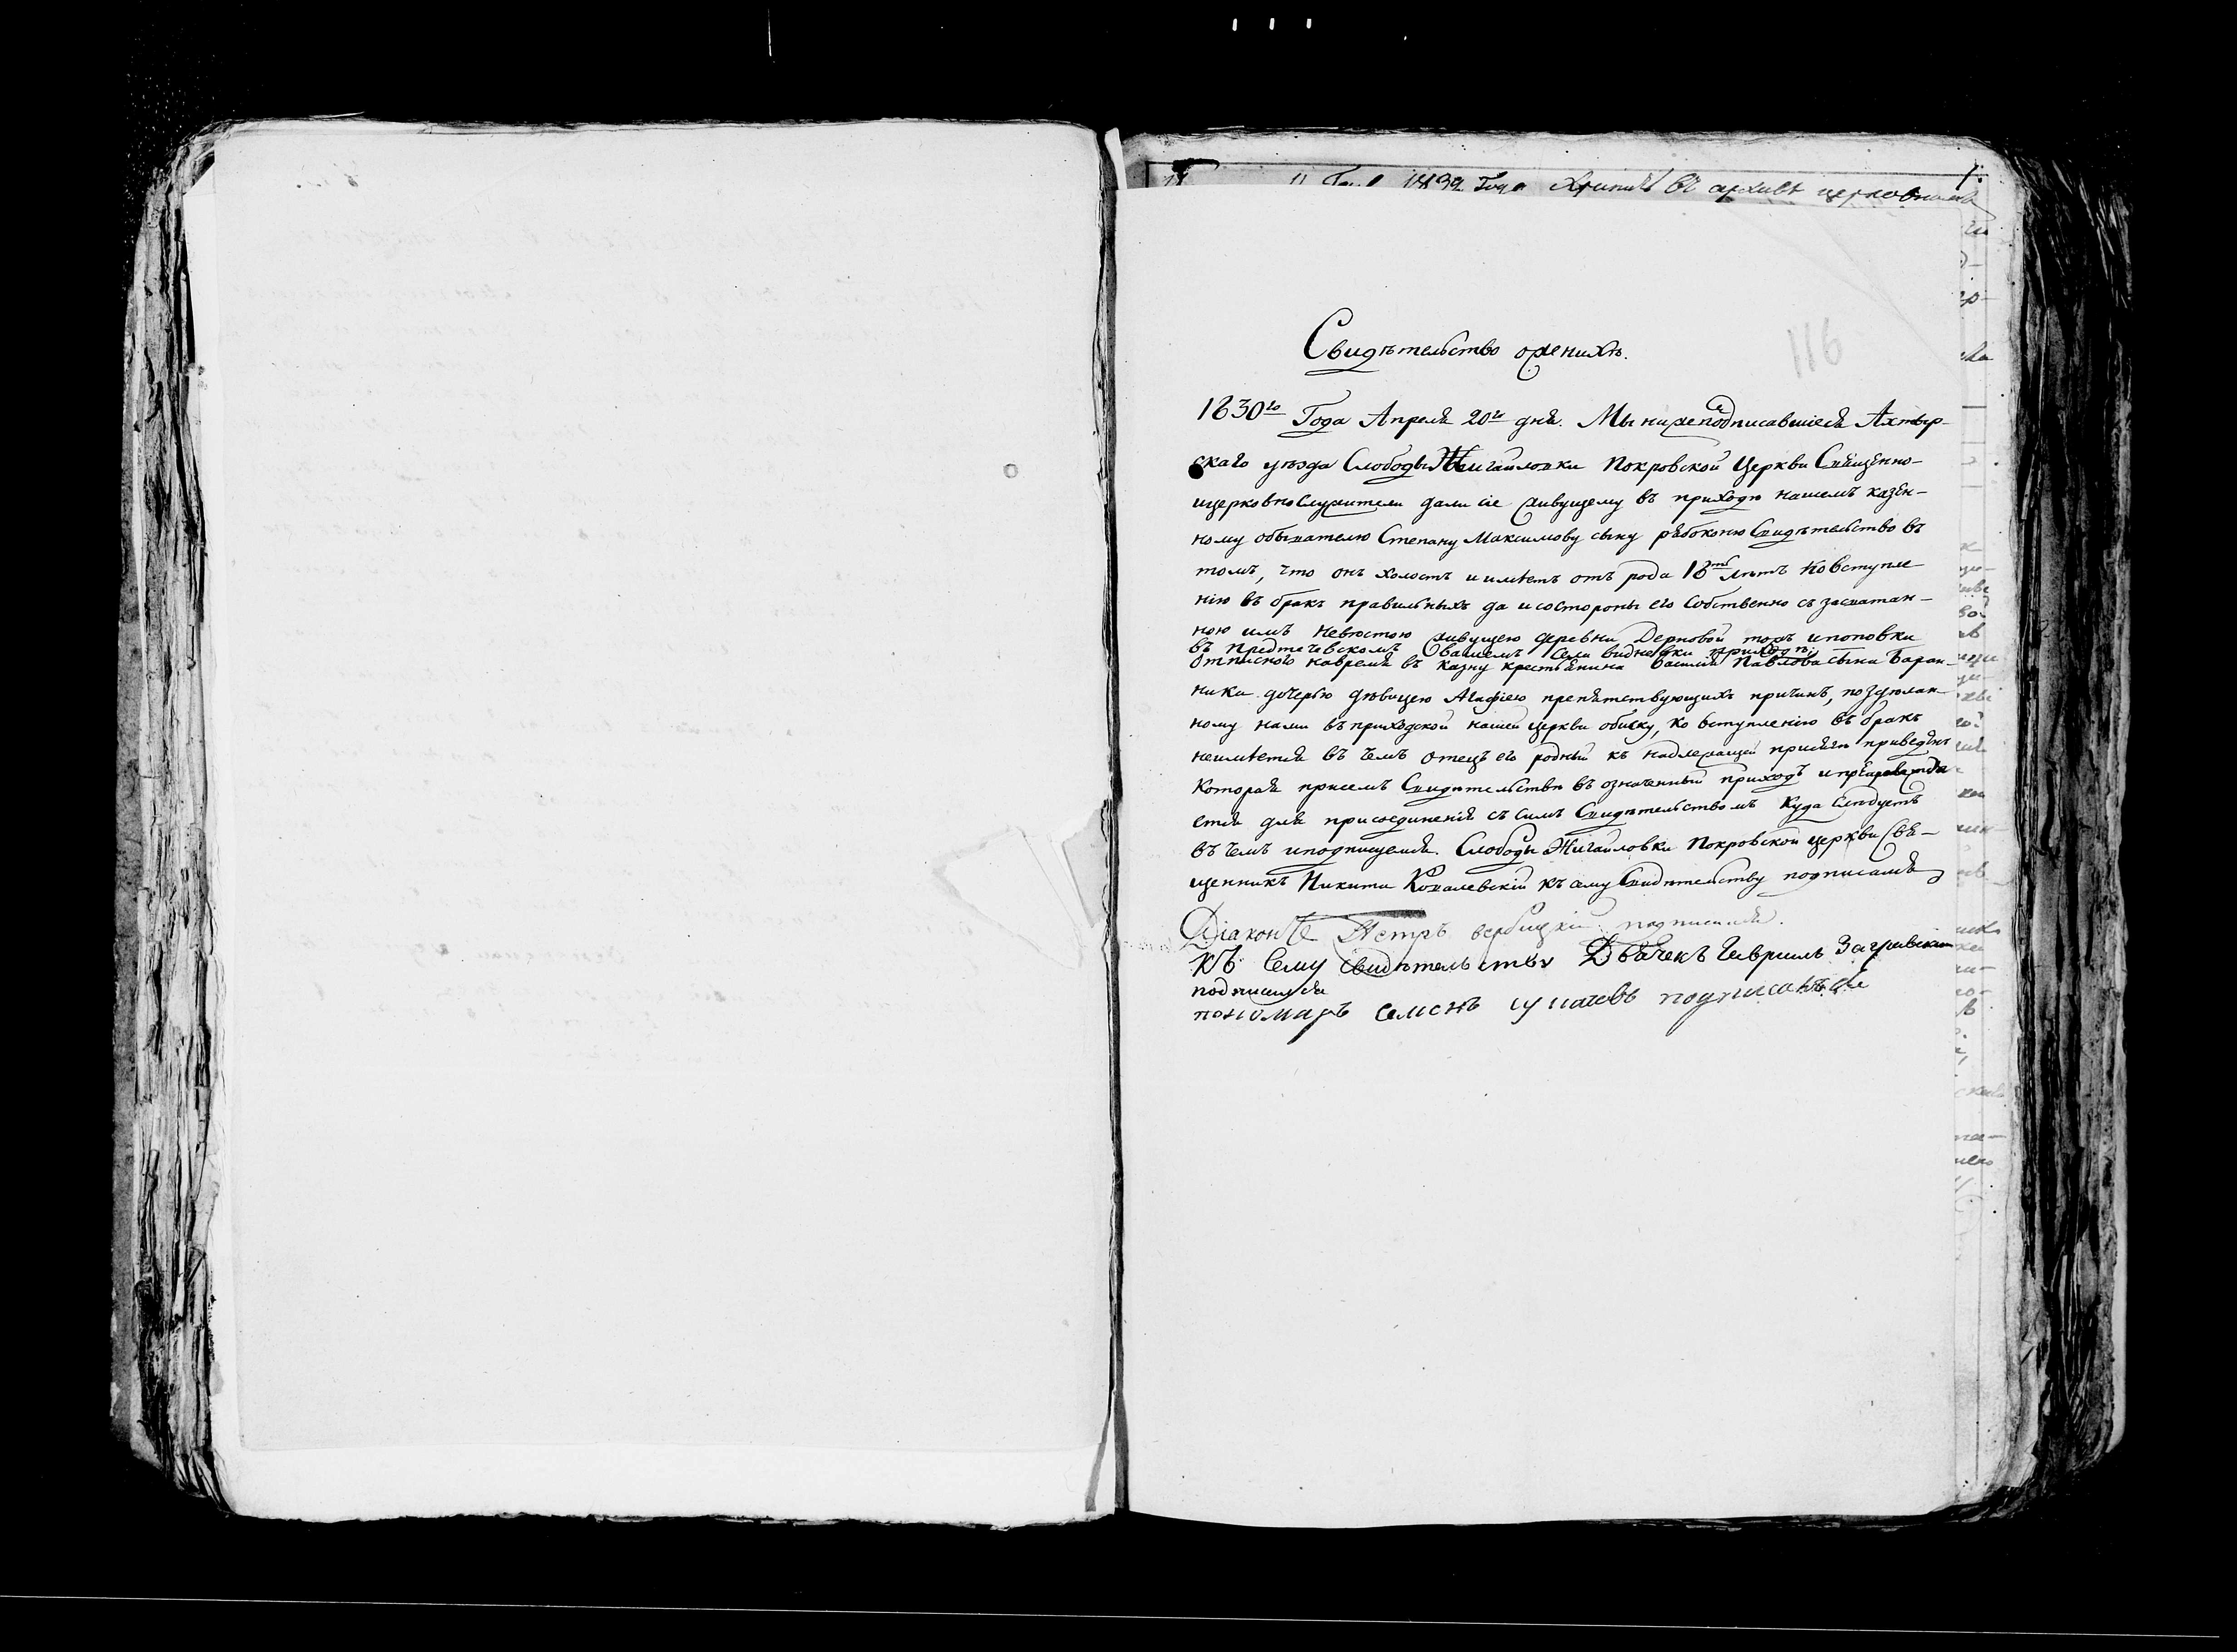 1832 Года хранить въ архивѣ церковномъ
116
Свидѣтельство о женихѣ.
1830го Года Апреля 20го дня. Мы нижеподписавшiеся Ахтыр-
скаго уѣзда Слободы Жигайловки Покровской Церкви Священно-
ицерковнослужители дали сiе живущему въ приходѣ нашемъ казен-
ному обывателю Степану Максимову сыну рябоконю Свидѣтельство въ
томъ, что онъ холостъ и имѣетъ отъ рода 18ть лѣтъ ко вступле
нiю въ бракъ правильныхъ да и состороны его собственно съ засватан-
ною имъ невѣстою живущею деревни Дерновой тожъ ипоповки
въ предтечевскомъ вашемъ села приходѣ
отписного навремя въ казну крестьянина василiя Павлова сына Баран-
ника дочерью дѣвицею Агафiею препятствующихъ причинъ, по
ному нами въ приходской нашей церкви обыску, ко вступленiю въ бракъ
неимѣется въ чемъ отецъ его родный къ надлежащей присягѣ приведенъ
Которая присемъ Свидѣтельствѣ въ означенный приходъ и
ется для присоединенiя съ симъ Свидѣтельствомъ куда Слѣдуетъ
въ чемъ иподписуемся. Слободы Жигайловки Покровской церкви Свя-
щенникъ Никита Ковалевскiй къ сему Свидѣтельству подписался
Дiаконъ Петръ вербицкiй подписался.
Къ Сему свидѣтельству Дьячекъ Гаврiилъ
подписался
пономарь семенъ подписался